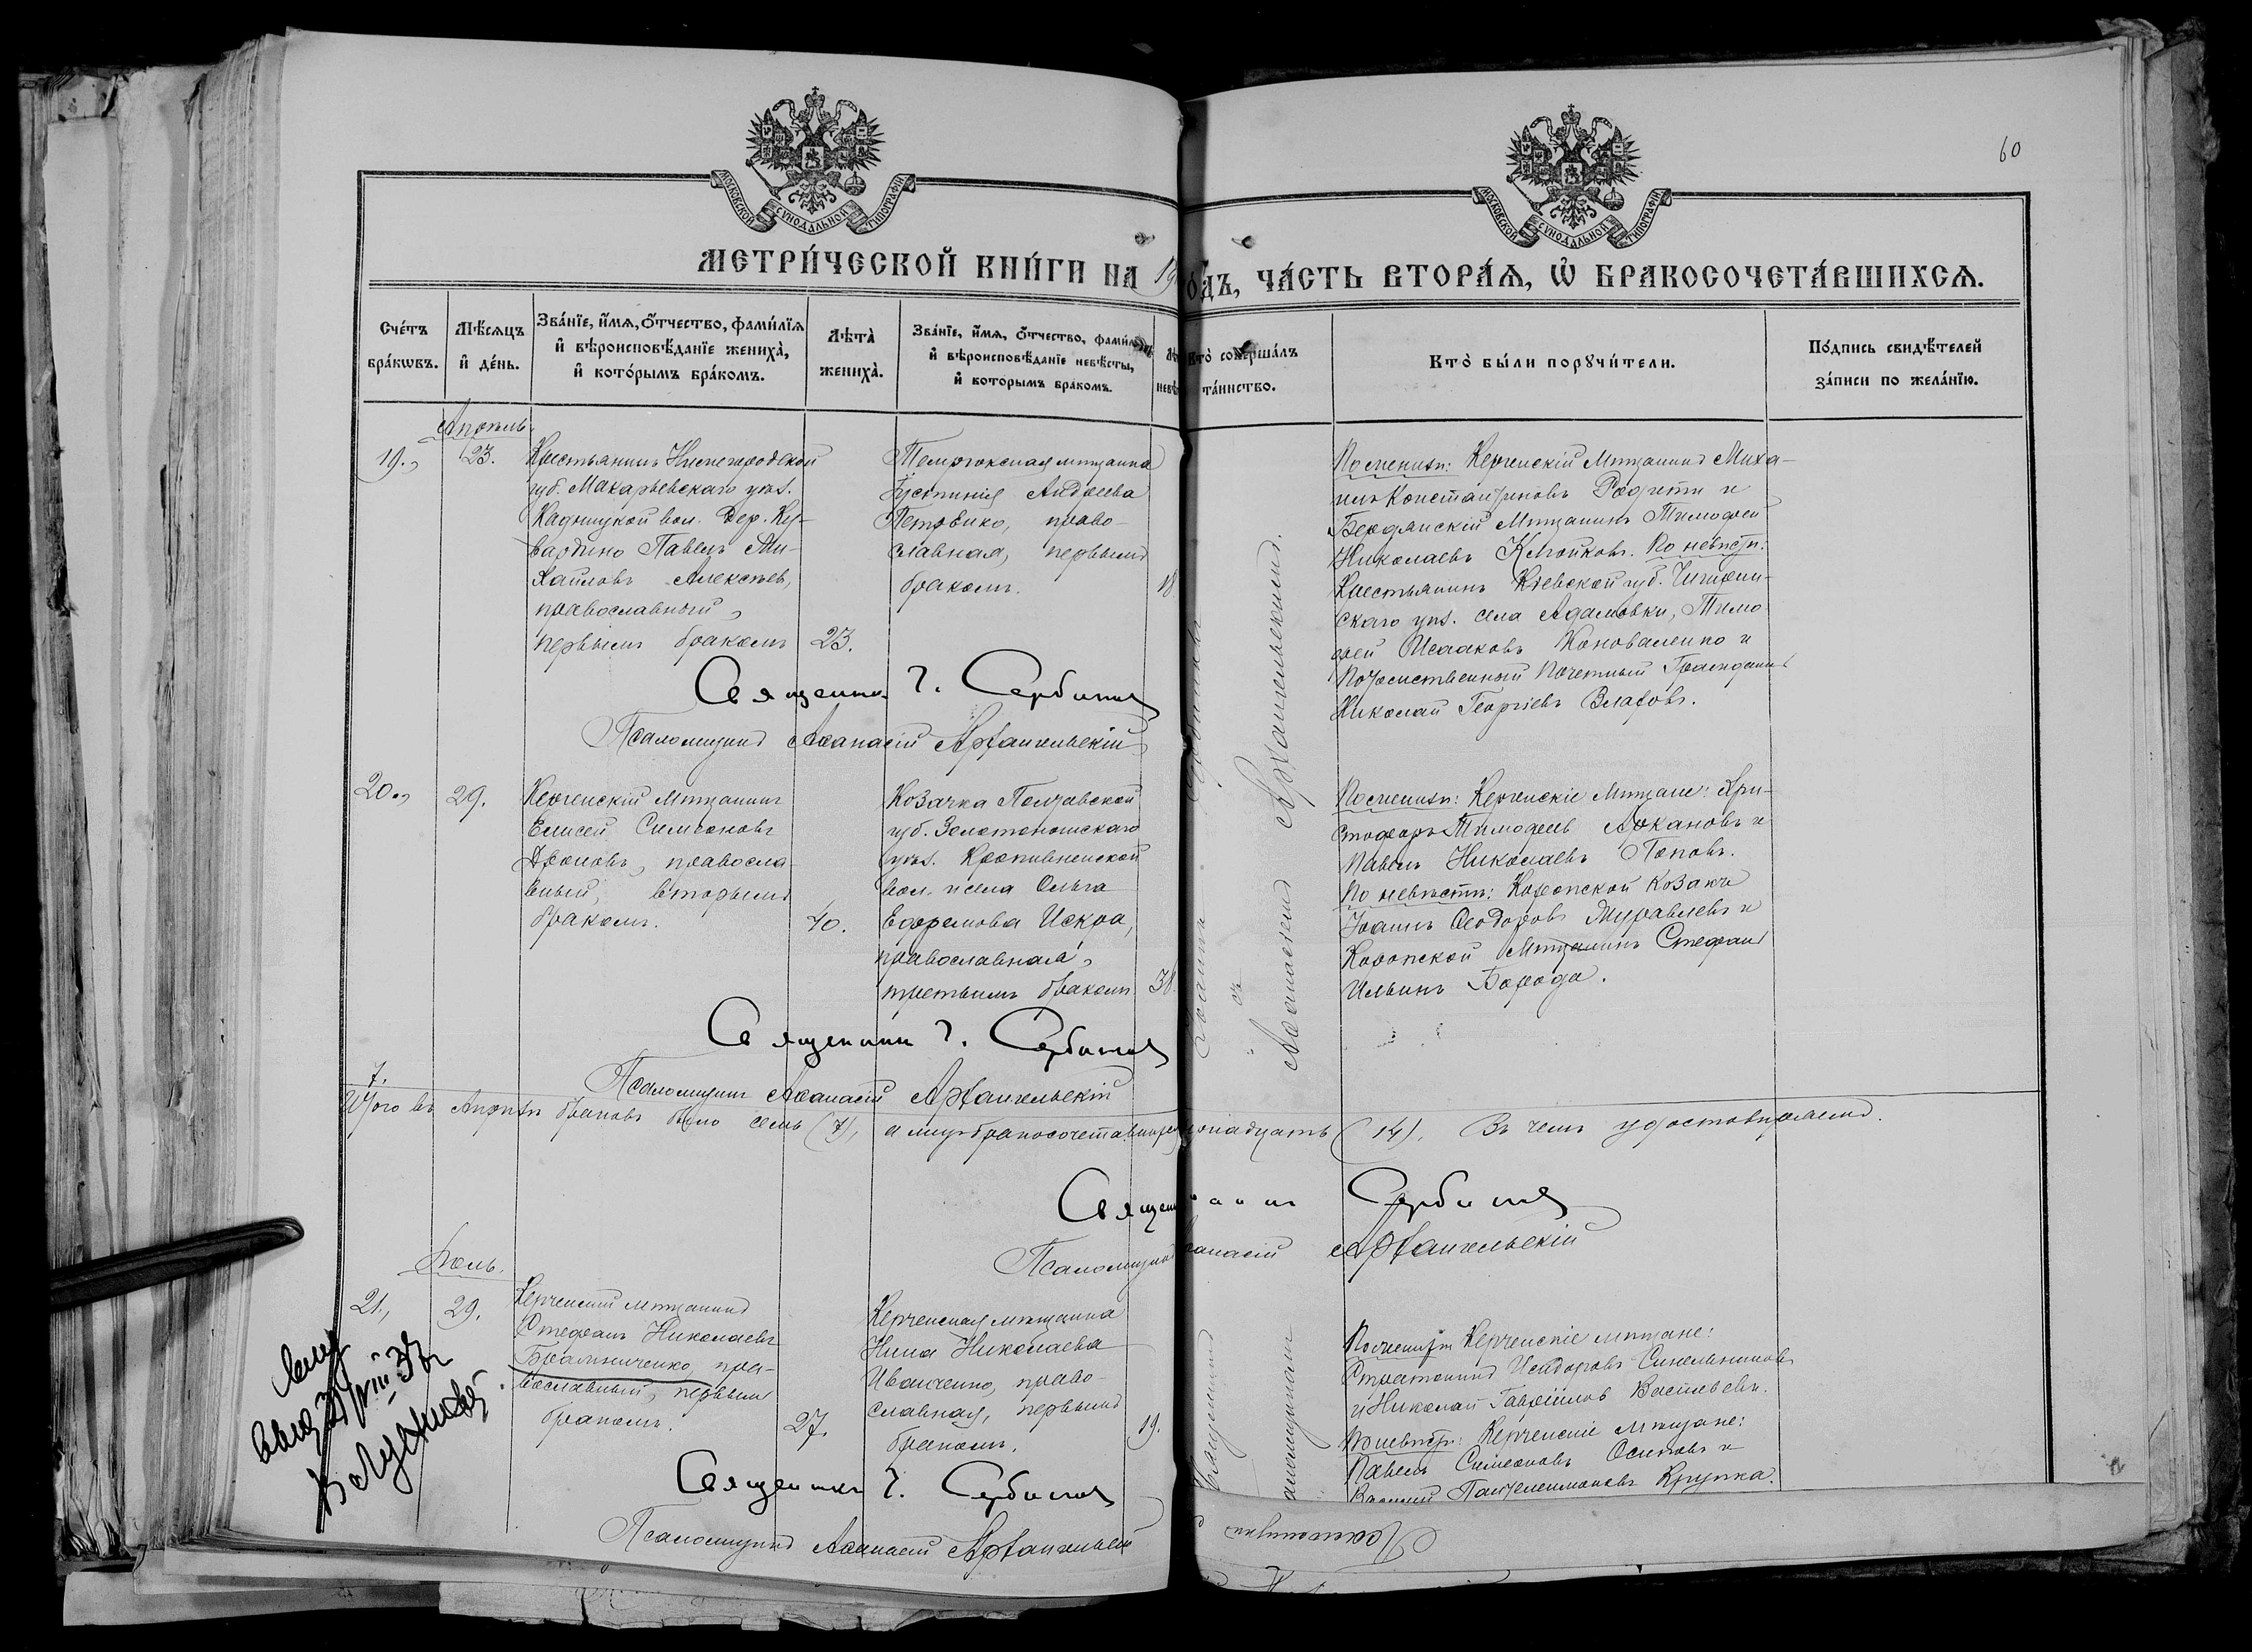 60
МОСКОВСКОЙ СѴНОДАЛЬНОЙ ТИПОГРАФІИ
МОСКОВСКОЙ СѴНОДАЛЬНОЙ ТИПОГРАФІИ
МЕТРИ́ЧЕСКОЙ КНИ́ГИ НА 19 ОДЪ, ЧА́СТЬ ВТОРА́Ѧ, Ѽ БРАКОСОЧЕТА́ВШИХСѦ.
Сче́тъ бра́кѡвъ.
Мѣ́сяцъ и҆ де́нь.
Зва́нїе, и҆́мѧ, ѻ҆́тчество, фами́лїѧ
и҆ вѣроисповѣ́данїе жениха̀,
и҆ кото́рымъ бра́комъ.
Лѣта̀ жениха̀.
Зва́нїе, и҆́мѧ, ѻ҆́тчество, фами́
и҆ вѣроисповѣ́данїе невѣ́сты,
и҆ кото́рымъ бра́комъ.
Кто̀ соверша́лъ
та́инство.
Кто̀ бы́ли порꙋчи́тели.
По́дпись свидѣ́телей
за́писи по жела́нїю.
Апрѣль.
19., 23.
Крестьянинъ Нижегородской
губ. Макарьевскаго уѣз.
Кадницкой вол. Дер. Ку-
вардино Павелъ Ми-
хайловъ Алексѣев,
православный,
первымъ бракомъ 23.
Темрюкская мѣщанка
Іустинія Андреева
Петренко, право-
славная, первымъ
бракомъ. 18
По женихѣ: Керченскій Мѣщанинъ Миха-
илъ Константиновъ и
Бердянскій Мѣщанинъ Тимофей
Николаевъ Клюйковъ. По невѣстѣ:
Крестьянинъ Кіевской губ. Чигирин-
скаго уѣз. села Адамовки, Тимо
фей Исааковъ Коноваленко и
Потомственный Почетный Гражданинъ
Николай Георгіевъ Влаховъ.
Священникъ І. Сербиновъ
Псаломщикъ Аѳанасій Архангельскій
20., 29.
Керченскій Мѣщанинъ
Елисей Симеоновъ
Дроновъ, правосла
вный, вторымъ
бракомъ. 40.
Козачка Полтавской
губ. Золотоношскаго
уѣз. Кропивненской
вол. и села Ольга
Ефремова Искра,
православная,
третьимъ бракомъ 38.
По женихѣ: Керченскіе Мѣщане: Хри-
стофоръ Тимофеевъ и
Павелъ Николаевъ Поповъ.
По невѣстѣ: Коропской Козакъ
Іоаннъ Ѳеодоровъ Муравлевъ и
Коропской Мѣщанинъ Стефанъ
Ильинъ Борода.
Священникъ І. Сербиновъ
Псаломщикъ Аѳанасій Архангельскій
съ
Аѳанасіемъ Архангельскимъ.
7.
Итого въ Апрѣлѣ браковъ было семь (7), а лицъ бракосочетавшихся надцать (14). Въ чемъ удостовѣряемъ.
Священникъ Сербиновъ
Псаломщикъ Аѳанасій Архангельскій
Іюль.
21., 29.
Керченскій мѣщанинъ
Стефанъ Николаевъ
Бражниченко, пра-
вославный, первымъ
бракомъ. 27.
Керченская мѣщанка
Нина Николаева
Иванченко, право-
славная, первымъ
бракомъ. 19.
По женихѣ Керченскіе мѣщане:
Стратоникъ Исидоровъ Синельниковъ
и Николай Гавріиловъ Васильевъ.
По невѣстѣ: Керченскіе Мѣщане:
Павелъ Симеоновъ Осиповъ и
Василій Пантелеимоновъ Крупка.
Священникъ І. Сербиновъ
Псаломщикъ Аѳанасій Архангельскій